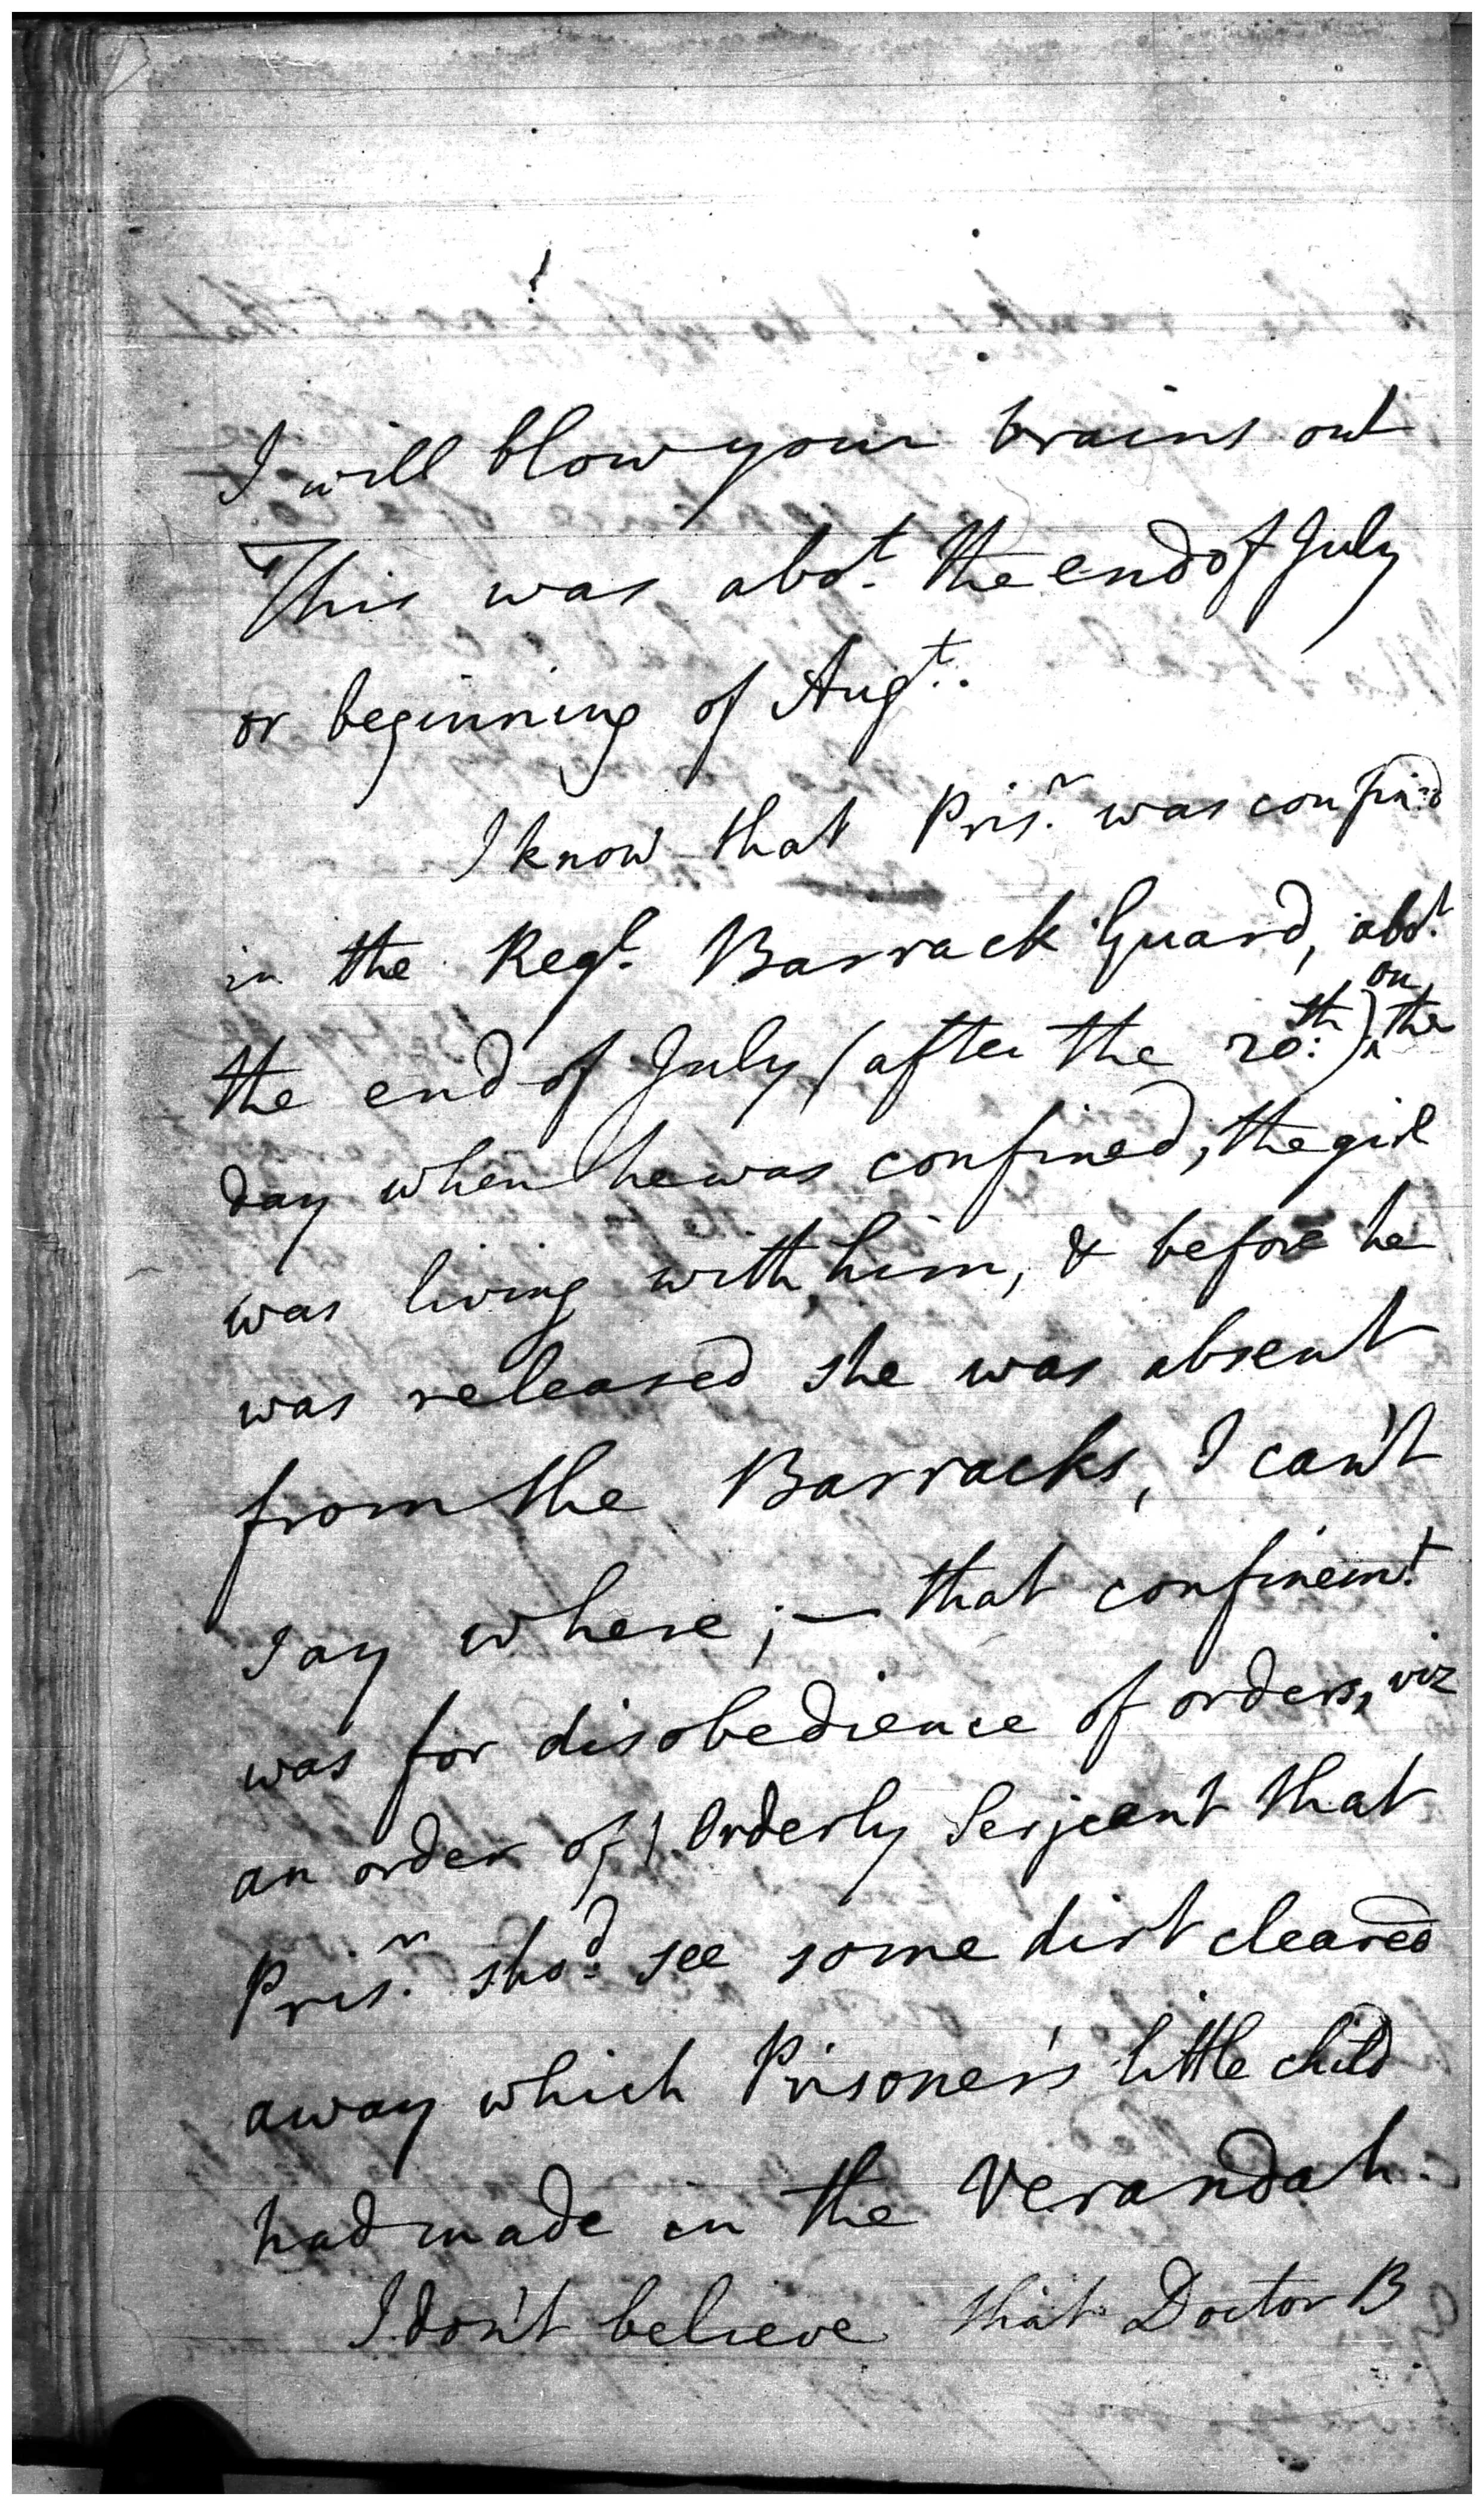 I will blow your brains out
This was abot. the end of July
or beginning of Augt.
I know that Prisr. was confin'd
in the Regl. Barrack Guard, abot.
the end of July (after the 20th:) on the
day when he was confined, the girl
was living with him, & before he
was released she was absent
from the Barracks, I can't
say where; — that confinemt.
was for disobedience of orders, viz
an order of Orderly Serjeant that
Prisr. shod. see some dirt cleared
away which Prisoner's little child
had made in the Verandah.
I don't believe that Doctor B